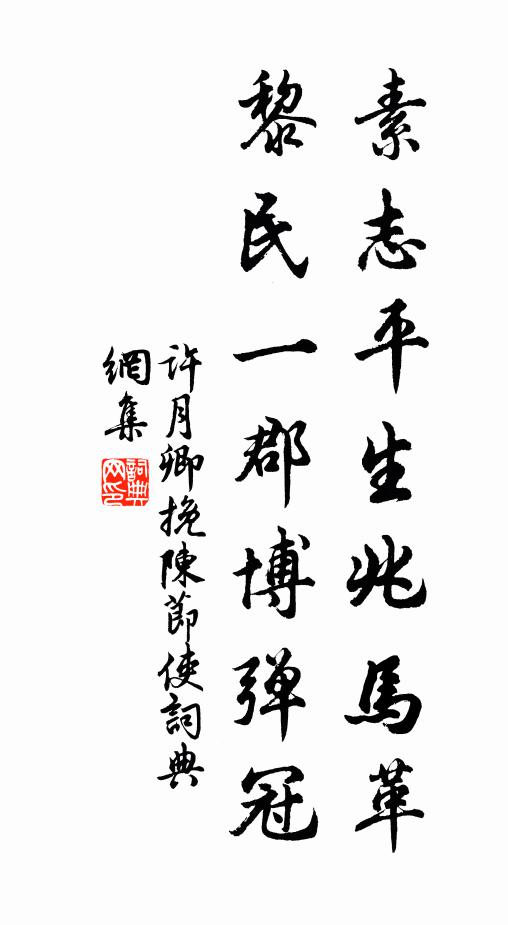 素志平生兆馬革
黎民一郡博弹冠
許月卿挽陳節使詞典
網集
詞典網印